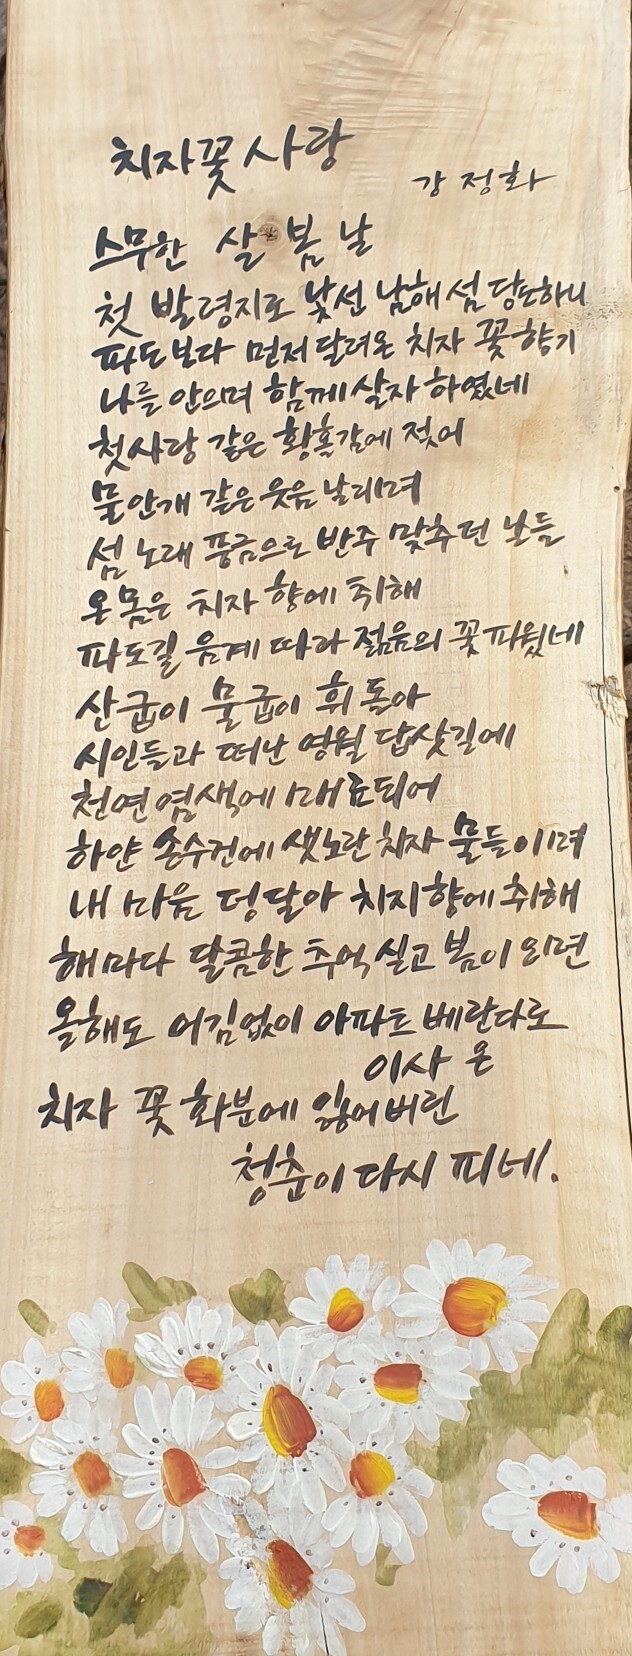 치자꽃 사랑
강 정화
스무한 살 봄 날
첫 발령지로 낯선 남해 섬 당도하니
파도보다 먼저 달려온 치자 꽃 향기
나를 안으며 함께 살자 하였네
첫사랑 같은 황홀감에 젖어
물안개 같은 웃음 날리며
섬 노래 풍금으로 반주 맞추던 날들
온 몸은 치자 향에 취해
파도길 음계 따라 젊음의 꽃 피웠네
산굽이 물굽이 휘 돌아
시인들과 떠난 영월 답삿길에
천연 염색에 매료되어
하얀 손수건에 샛노란 치자 물들이며
내 마음 덩달아 치지향에 취해
해마다 달콤한 추억 싣고 봄이 오면
올해도 어김없이 아파트 베란다로
이사 온
치자 꽃 화분에 잃어버린
청춘이 다시 피네.